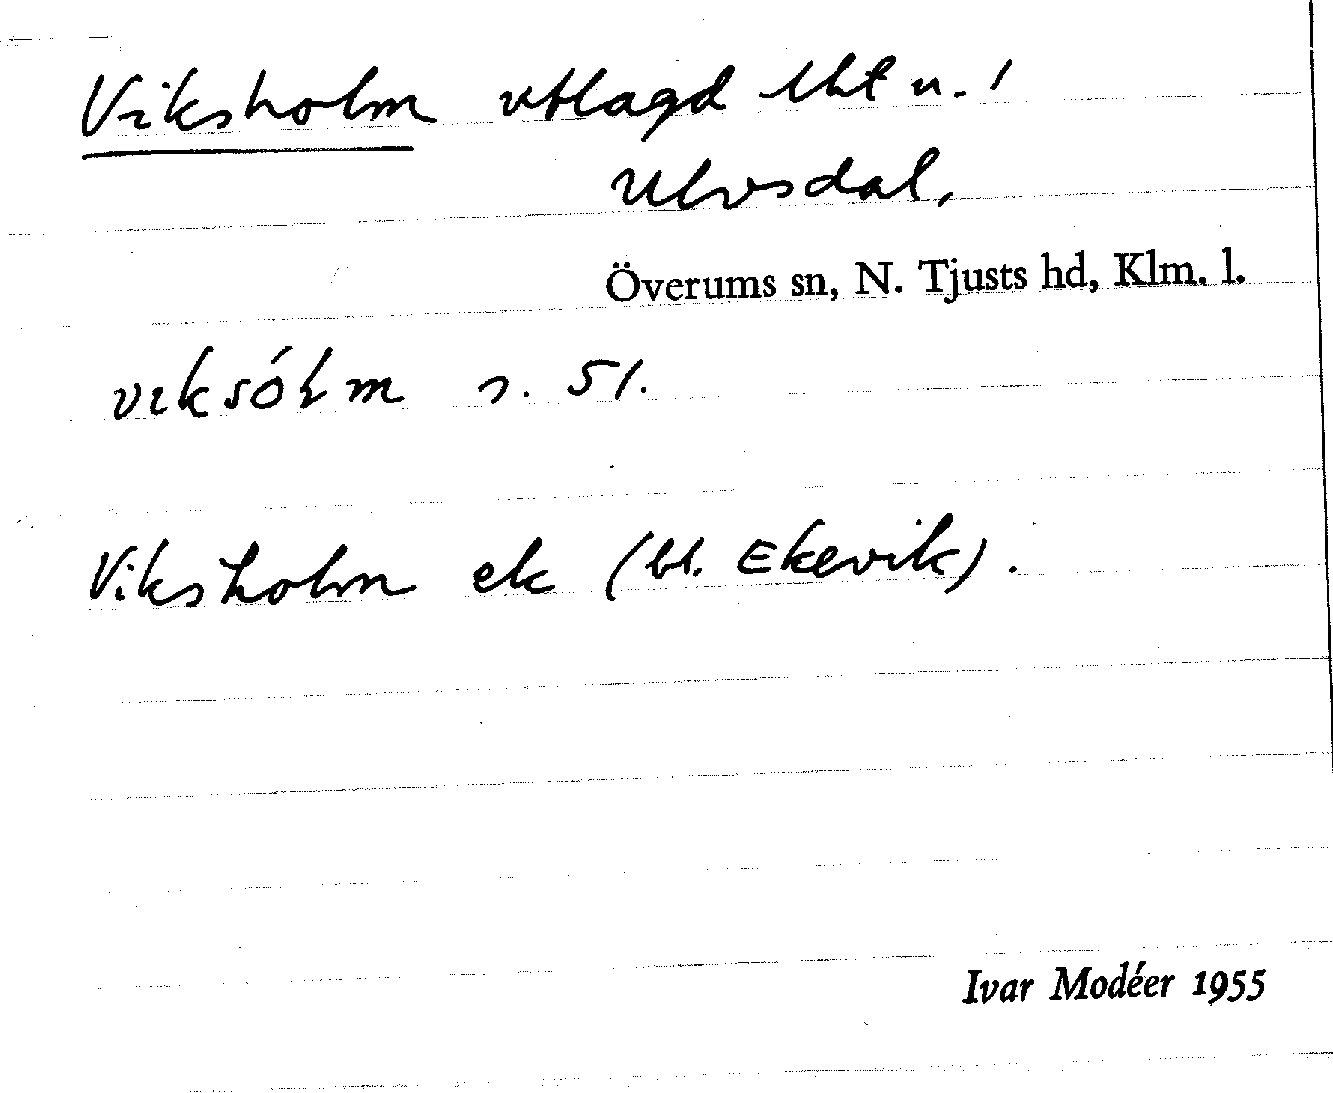 Viksholm utlagd lht u. 1
Ulvsdal,
Överums sn, N. Tjusts hd, Klm. l.
viksó m s. 51.
Viksholm ek (bl. Ekevik).
Ivar Modéer 1955